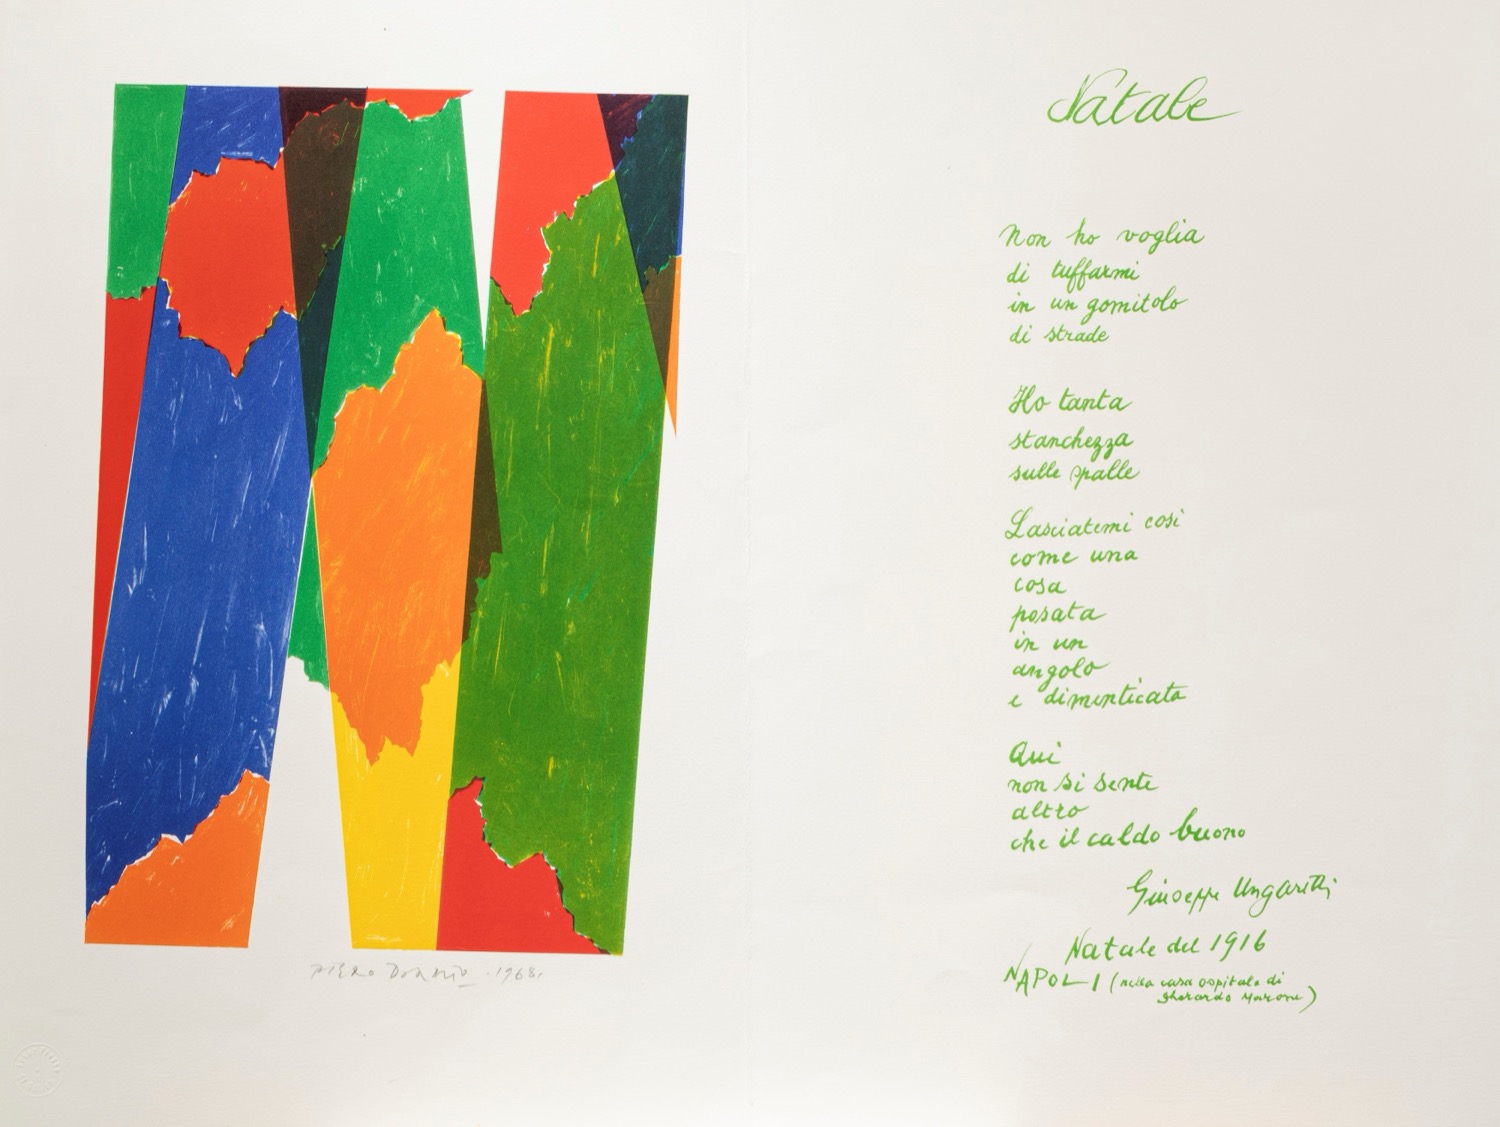 Piero Dorazio . 1968.
Natale
Non ho voglia
di tuffarmi
in un gomitolo
di strade
Ho tanta
stanchezza
sulle spalle
Lasciatemi così
come una
cosa
posata
in un
angolo
e dimenticata
Qui
non si sente
altro
che il caldo buono
Giuseppe Ungaretti
Natale del 1916
NAPOLI (nella casa ospitale di
Gherardo Marone)